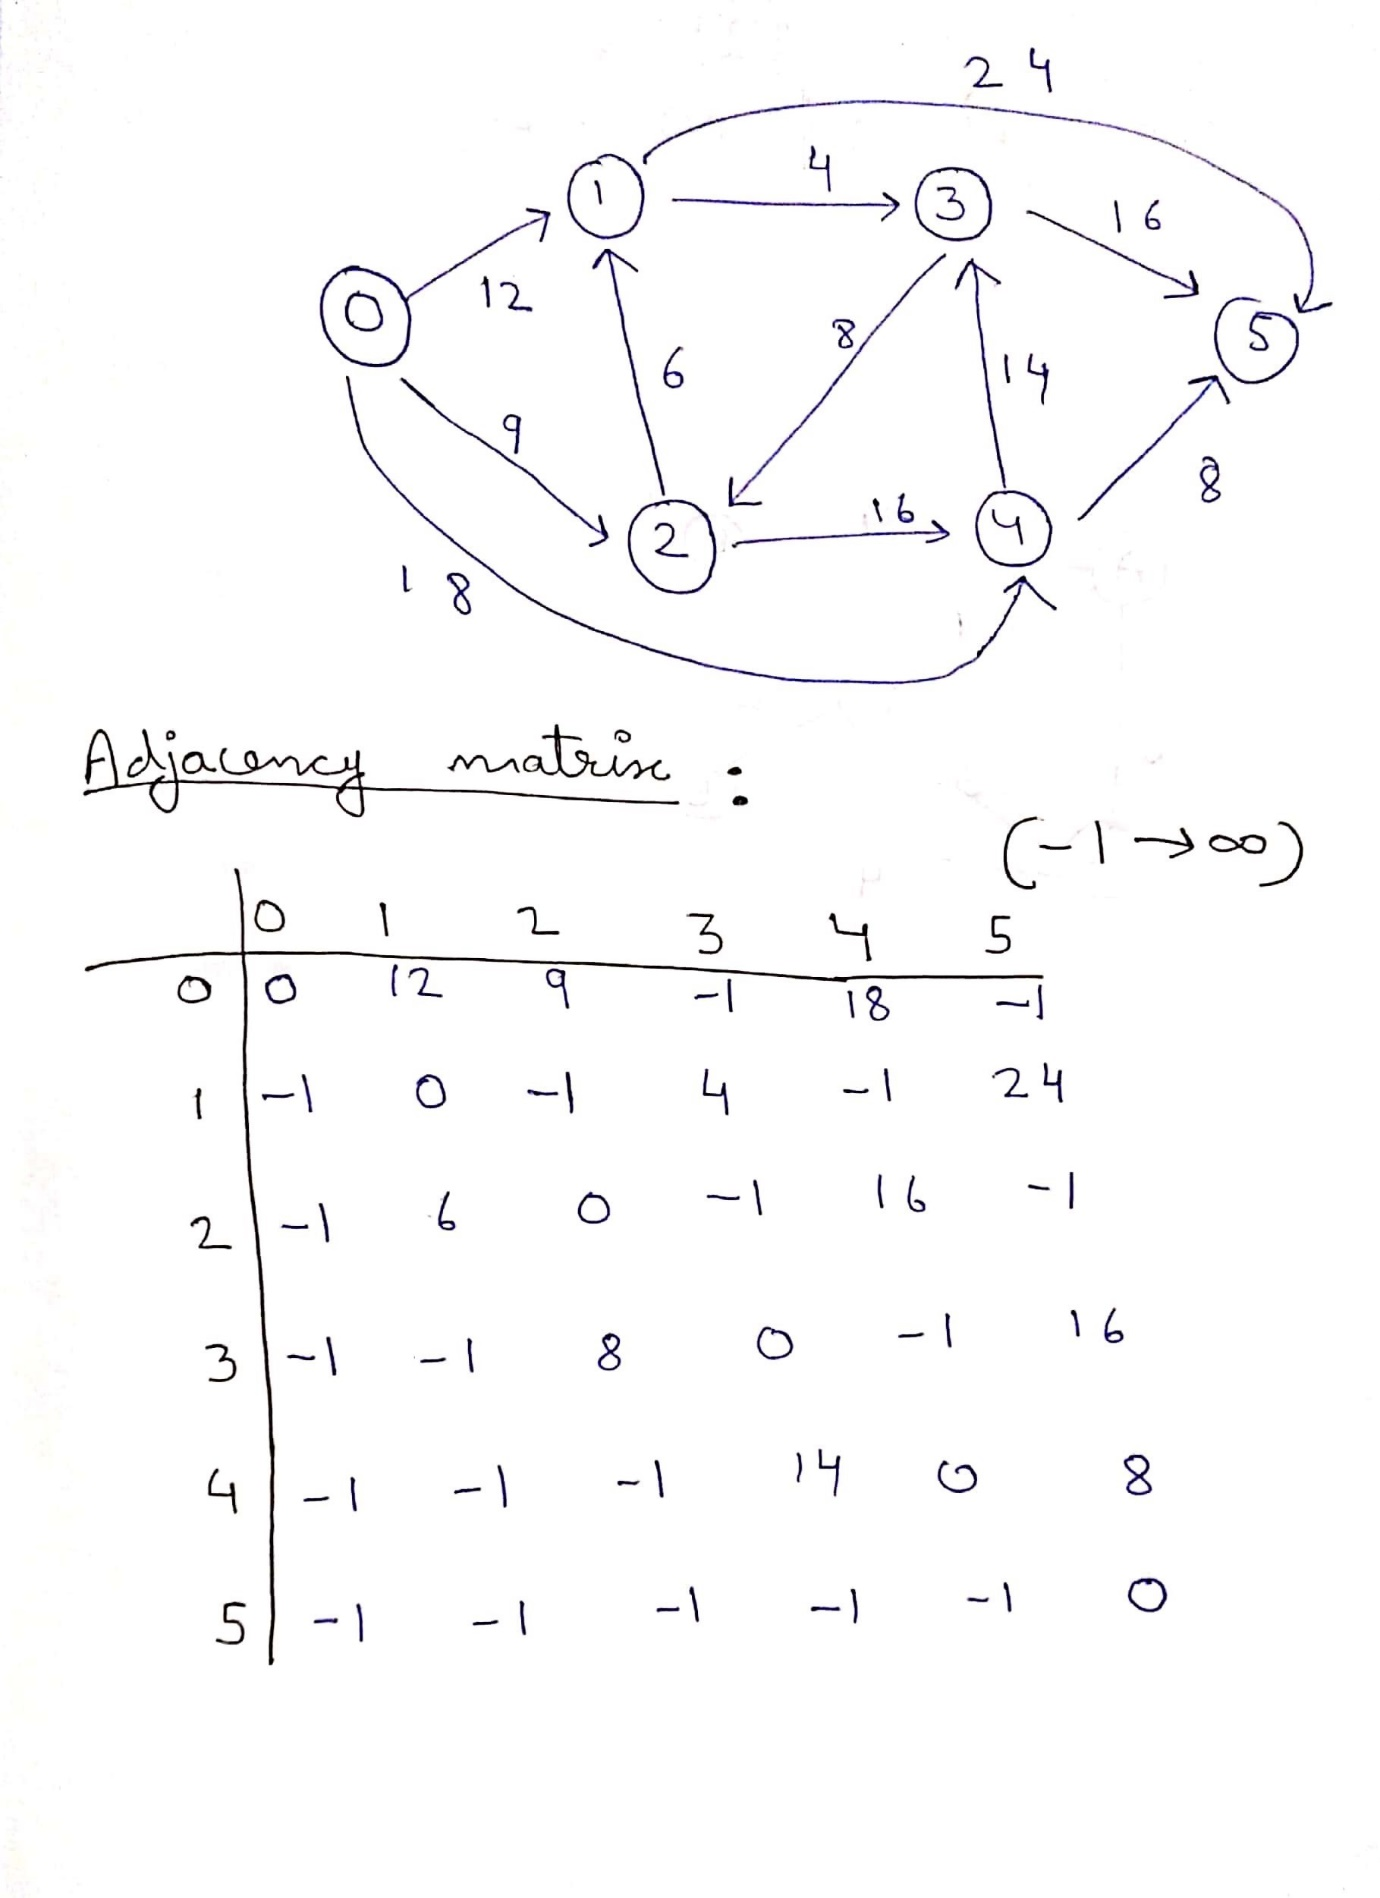 24
4
1
3
16
12
0
8
5
6
14
9
8
16
2
4
18
Adjacency matrix :
(-1→∞)
0 1 2 3 4 5
0 0 12 9 -1 18 -1
1 -1 0 -1 4 -1 24
2 -1 6 0 -1 16 -1
3 -1 -1 8 0 -1 16
4 -1 -1 -1 14 0 8
5 -1 -1 -1 -1 -1 0